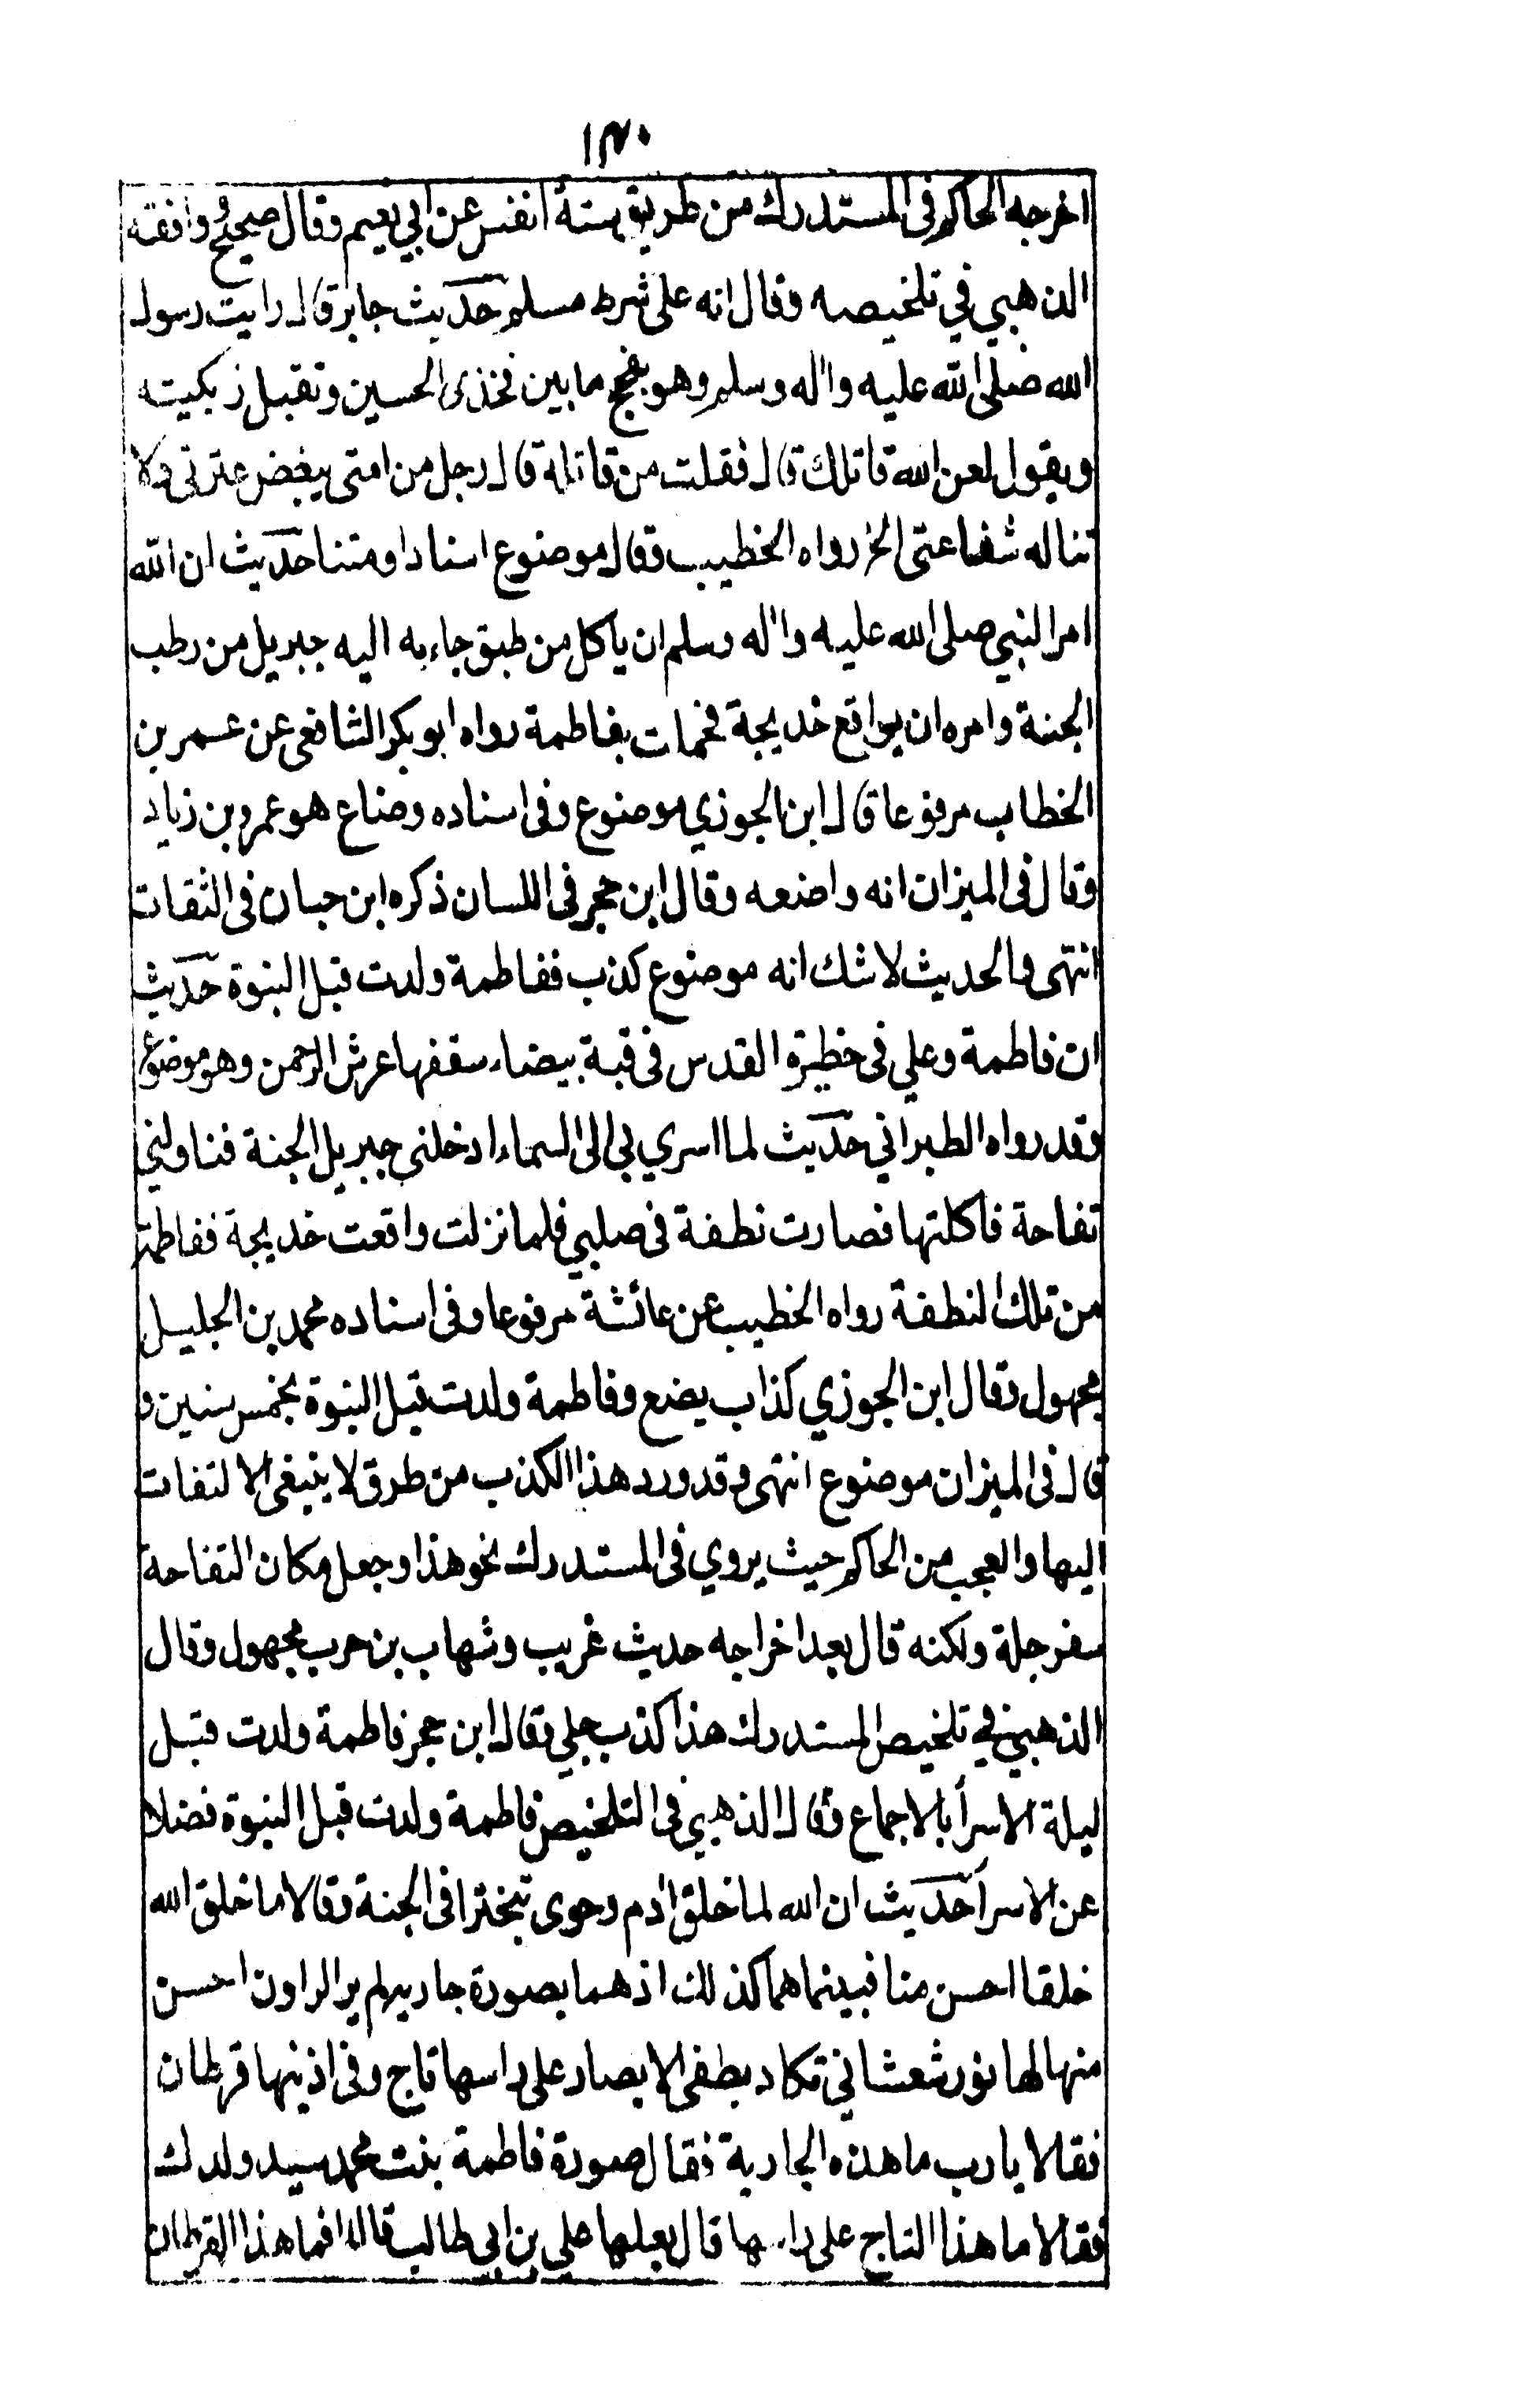 ١٣٠
اخرجه الحاكم فى المستدرك من طريق ستة انفس عن ابي نعيم وقال صحيح وافقه
الذهبي في تلخيصه وقال انه على شرط مسلم حديث جابر قال رايت رسول
الله صلى الله عليه واله وسلم وهو يفحج ما بين فخذى الحسين وتقبل زبيبته
ويقول لعن الله قاتلك قال فقلت من قاتله قال رجل من امتى يبغض عترتى ولا
تناله شفاعتى الخ رواه الخطيب وقال موضوع اسنادا ومتنا حديث ان الله
امر النبي صلى الله عليه واله وسلم ان ياكل من طبق جاء به اليه جبريل من رطب
الجنة وامره ان يواقع خديجة فحملت بفاطمة رواه ابو بكر الشافعى عن عمر بن
الخطاب مرفوعا قال ابن الجوزي موضوع وفى اسناده وضاع هو عمرو بن زياد
وقال فى الميزان انه واضعه وقال ابن حجر فى اللسان ذكره ابن حبان فى الثقات
انتهى والحديث لا شك انه موضوع كذب ففاطمة ولدت قبل النبوة حديث
ان فاطمة وعلي فى حظيرة القدس فى قبة بيضاء سقفها عرش الرحمن وهو موضوع
وقد رواه الطبراني حديث لما اسري بي الى السماء ادخلنى جبريل الجنة فناولني
تفاحة فاكلتها فصارت نطفة فى صلبي فلما نزلت واقعت خديجة ففاطمة
من تلك النطفة رواه الخطيب عن عائشة مرفوعا وفى اسناده محمد بن الجليل
مجهول وقال ابن الجوزي كذاب يضع وفاطمة ولدت قبل النبوة بخمس سنين و
قال فى الميزان موضوع انتهى وقد ورد هذا الكذب من طرق لا ينبغى الالتفات
اليها والعجب من الحاكم حيث يروي فى المستدرك نحو هذا وجعل مكان التفاحة
سفرجلة ولكنه قال بعد اخراجه حديث غريب وشهاب بن حرب مجهول وقال
الذهبي في تلخيص المستدرك هذا كذب جلي وقال ابن حجر فاطمة ولدت قبل
ليلة الاسرأ بالاجماع وقال الذهبي فى التلخيص فاطمة ولدت قبل النبوة فضلا
عن الاسرأ حديث ان الله لما خلق ادم وحوى تبخترا فى الجنة وقالا ما خلق الله
خلقا احسن منا فبينما هما كذلك اذ هما بصورة جارية لم ير الراون احسن
منها لها نور شعشاني تكاد يطفى الابصار على راسها تاج وفى اذنيها قرطان
فقالا يا رب ما هذه الجارية فقال صورة فاطمة بنت محمد سيد ولدك
فقالا ما هذا التاج على راسها قال بعلها علي بن ابى طالب قالا فما هذا القرطان